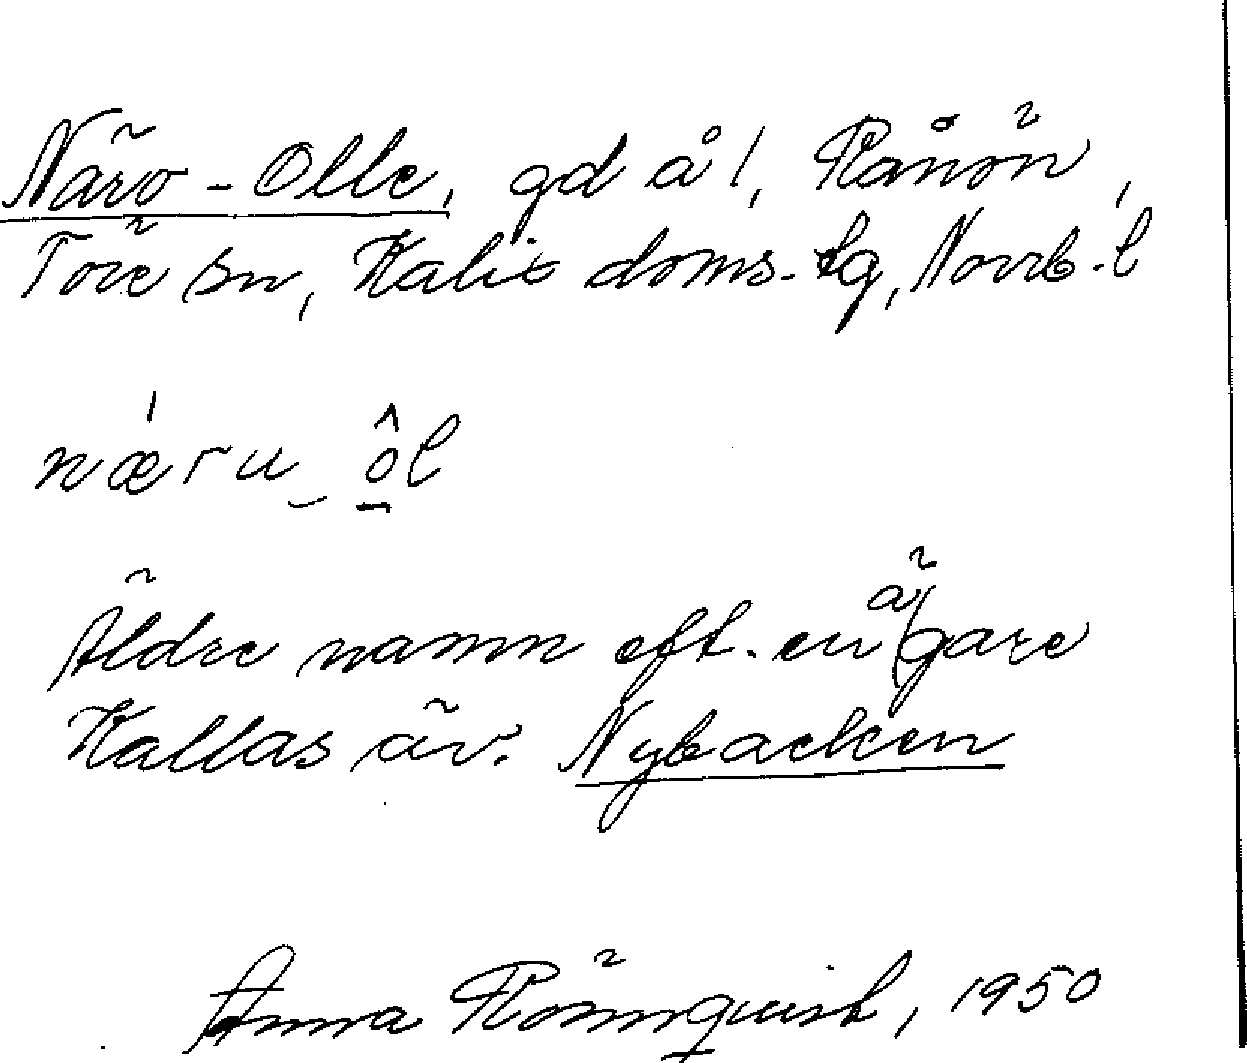 Närv-Olle, gd å 1, Rånön,
Töre sn, Kalix doms.tg, Norrb.l
næ'ru‿ ô̱l
Äldre namn eft. en ägare
Kallas äv. Nybacken
Anna Rönnquist, 1950